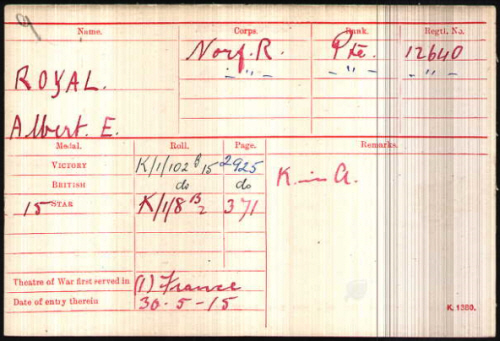 Name. Corps. Rank. Regtl. No.
ROYAL. Norf. R. Pte. 12640
— " — — " — — " —
Albert. E.
Medal. Roll. Page. Remarks.
VICTORY K/1/102 B15 2925
BRITISH do do
K. in A.
15 STAR K/1/8 B2 371
Theatre of War first served in (1) France
Date of entry therein 30-5-15
K. 1380.